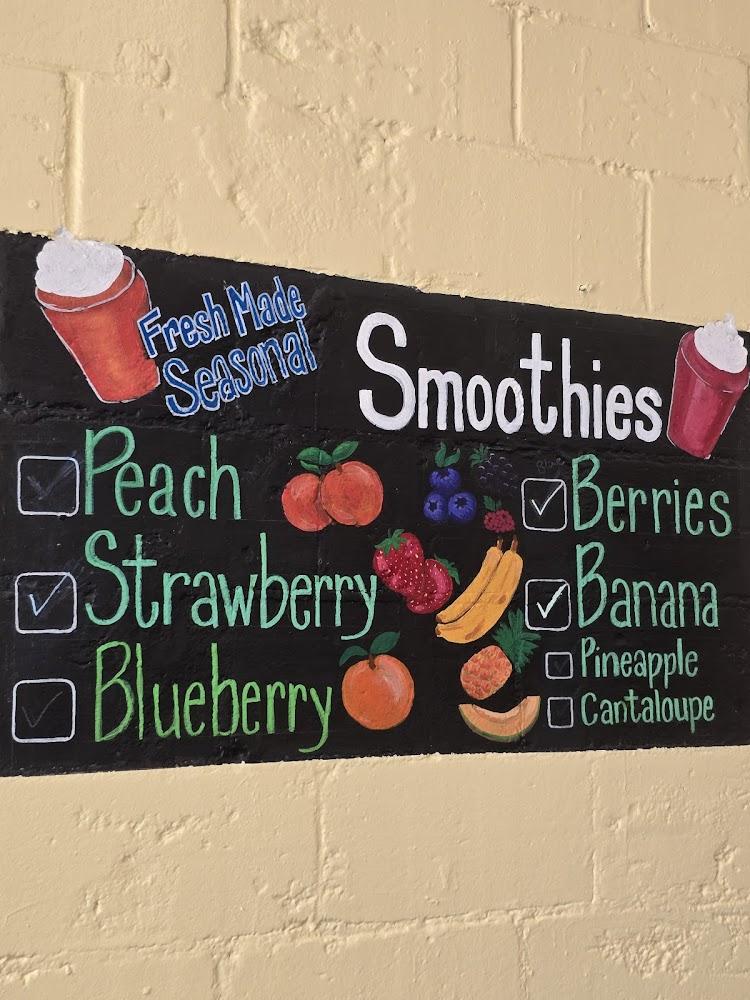 Fresh Made
Seasonal
Smoothies
Peach
Strawberry
Blueberry
Berries
Banana
Pineapple
Cantaloupe